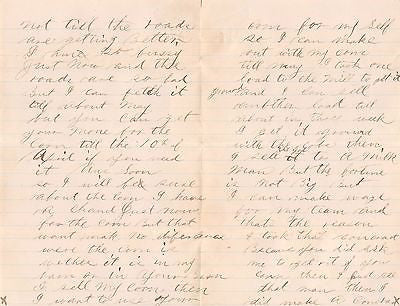 not till the roads
are getting better
I aint so bussy
Just Now and the
roads are so bad
But I can fetch it
till about May
but you Can get
your mone for the
Corn till the 10th of
April if you need
it Now Soon
so I will be sure
about the Corn I have
no Chance Just now
for the Corn But that
wont mak No diferance
were the Corn is
wether it is in my
barn or in Your own
I sell my Corn then
I want to use Yours
corn for my Self
so I can make
out with my Corn
till May I took one
load to the Mill to get it
ground and I can sell
another load out
about in this week
I get it ground
with the cobs then
I sell it to A Milk
Man But the fortune
is Not Big But
I can make wage
for my team and
thats the reason
I took that
Because you did ask
me to get out if you
Corn then I just see
that man then I
did make A